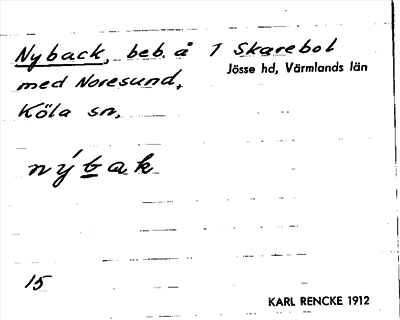 Nyback, beb. å 1 Skarebol
Jösse hd, Värmlands län
med Noresund,
Köla sn,
nýbak
15
KARL RENCKE 1912